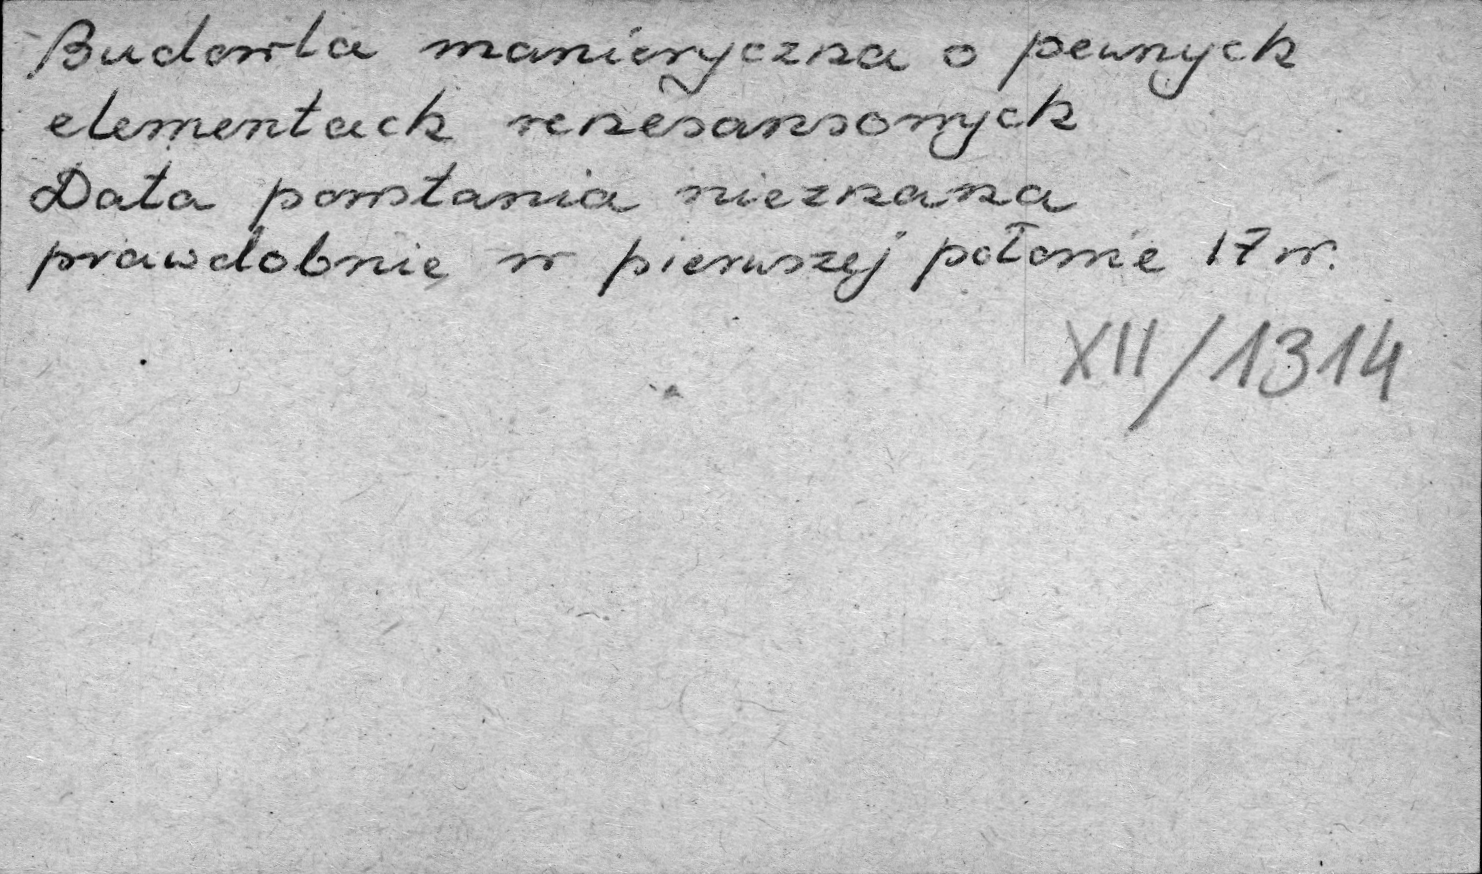 Budowla manieryczna o pewnych
elementach renesansowych
Data powstania nieznana
prawdobnie w pierwszej połowie 17 w.
XII/1314